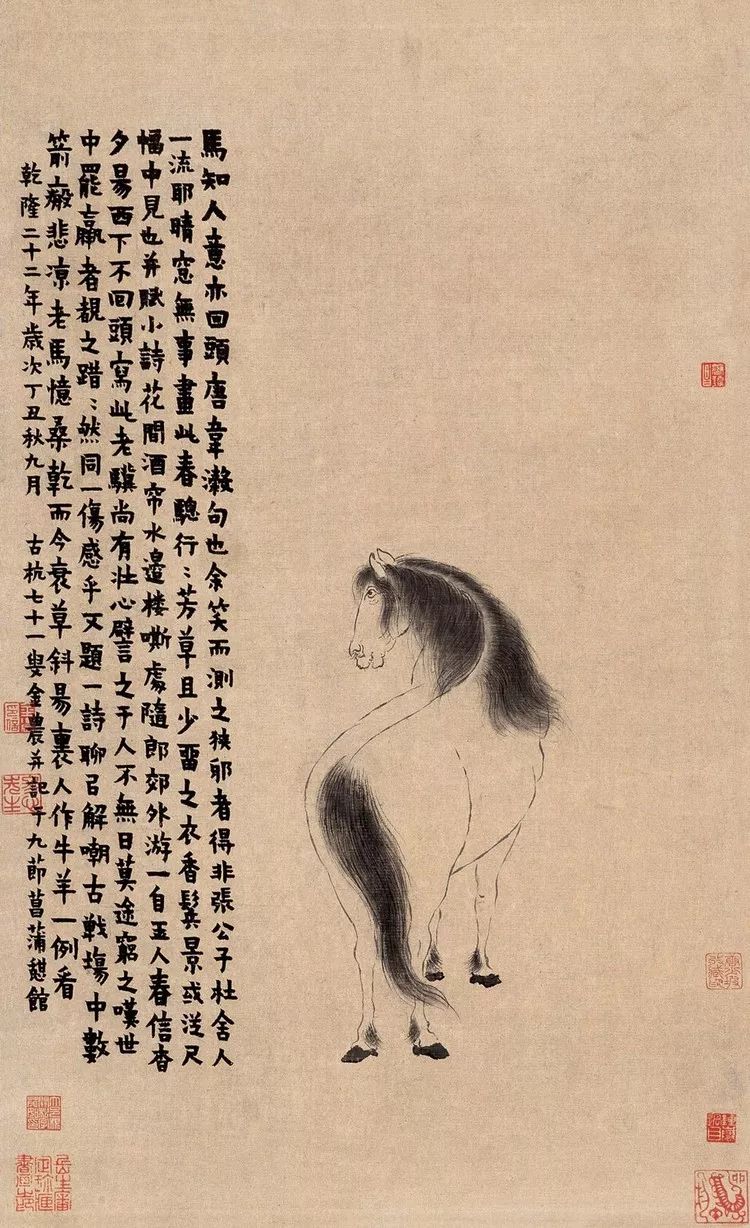 馬知人意亦回頭唐韋瀔句也余笑而測之狹邪者得非張公子杜舍人
一流耶晴窓無事畫此春驄行〻芳草且少畱之衣香鬓景或從尺
幅中見也并賦小詩花間酒帘水邊楼嘶處隨郎郊外游一自玉人春信杳
夕昜西下不回頭寫此老驥尚有壮心譬之于人不無日莫途窮之嘆世
中罷羸者覩之踖〻然同一傷感乎又題一詩聊㠯解嘲古戰塲中數
箭瘢悲凉老馬憶桑乾而今衰草斜昜裏人作牛羊一例看
乾隆二十二年歲次丁丑秋九月 古杭七十一叟金農并記于九節菖蒲憩館